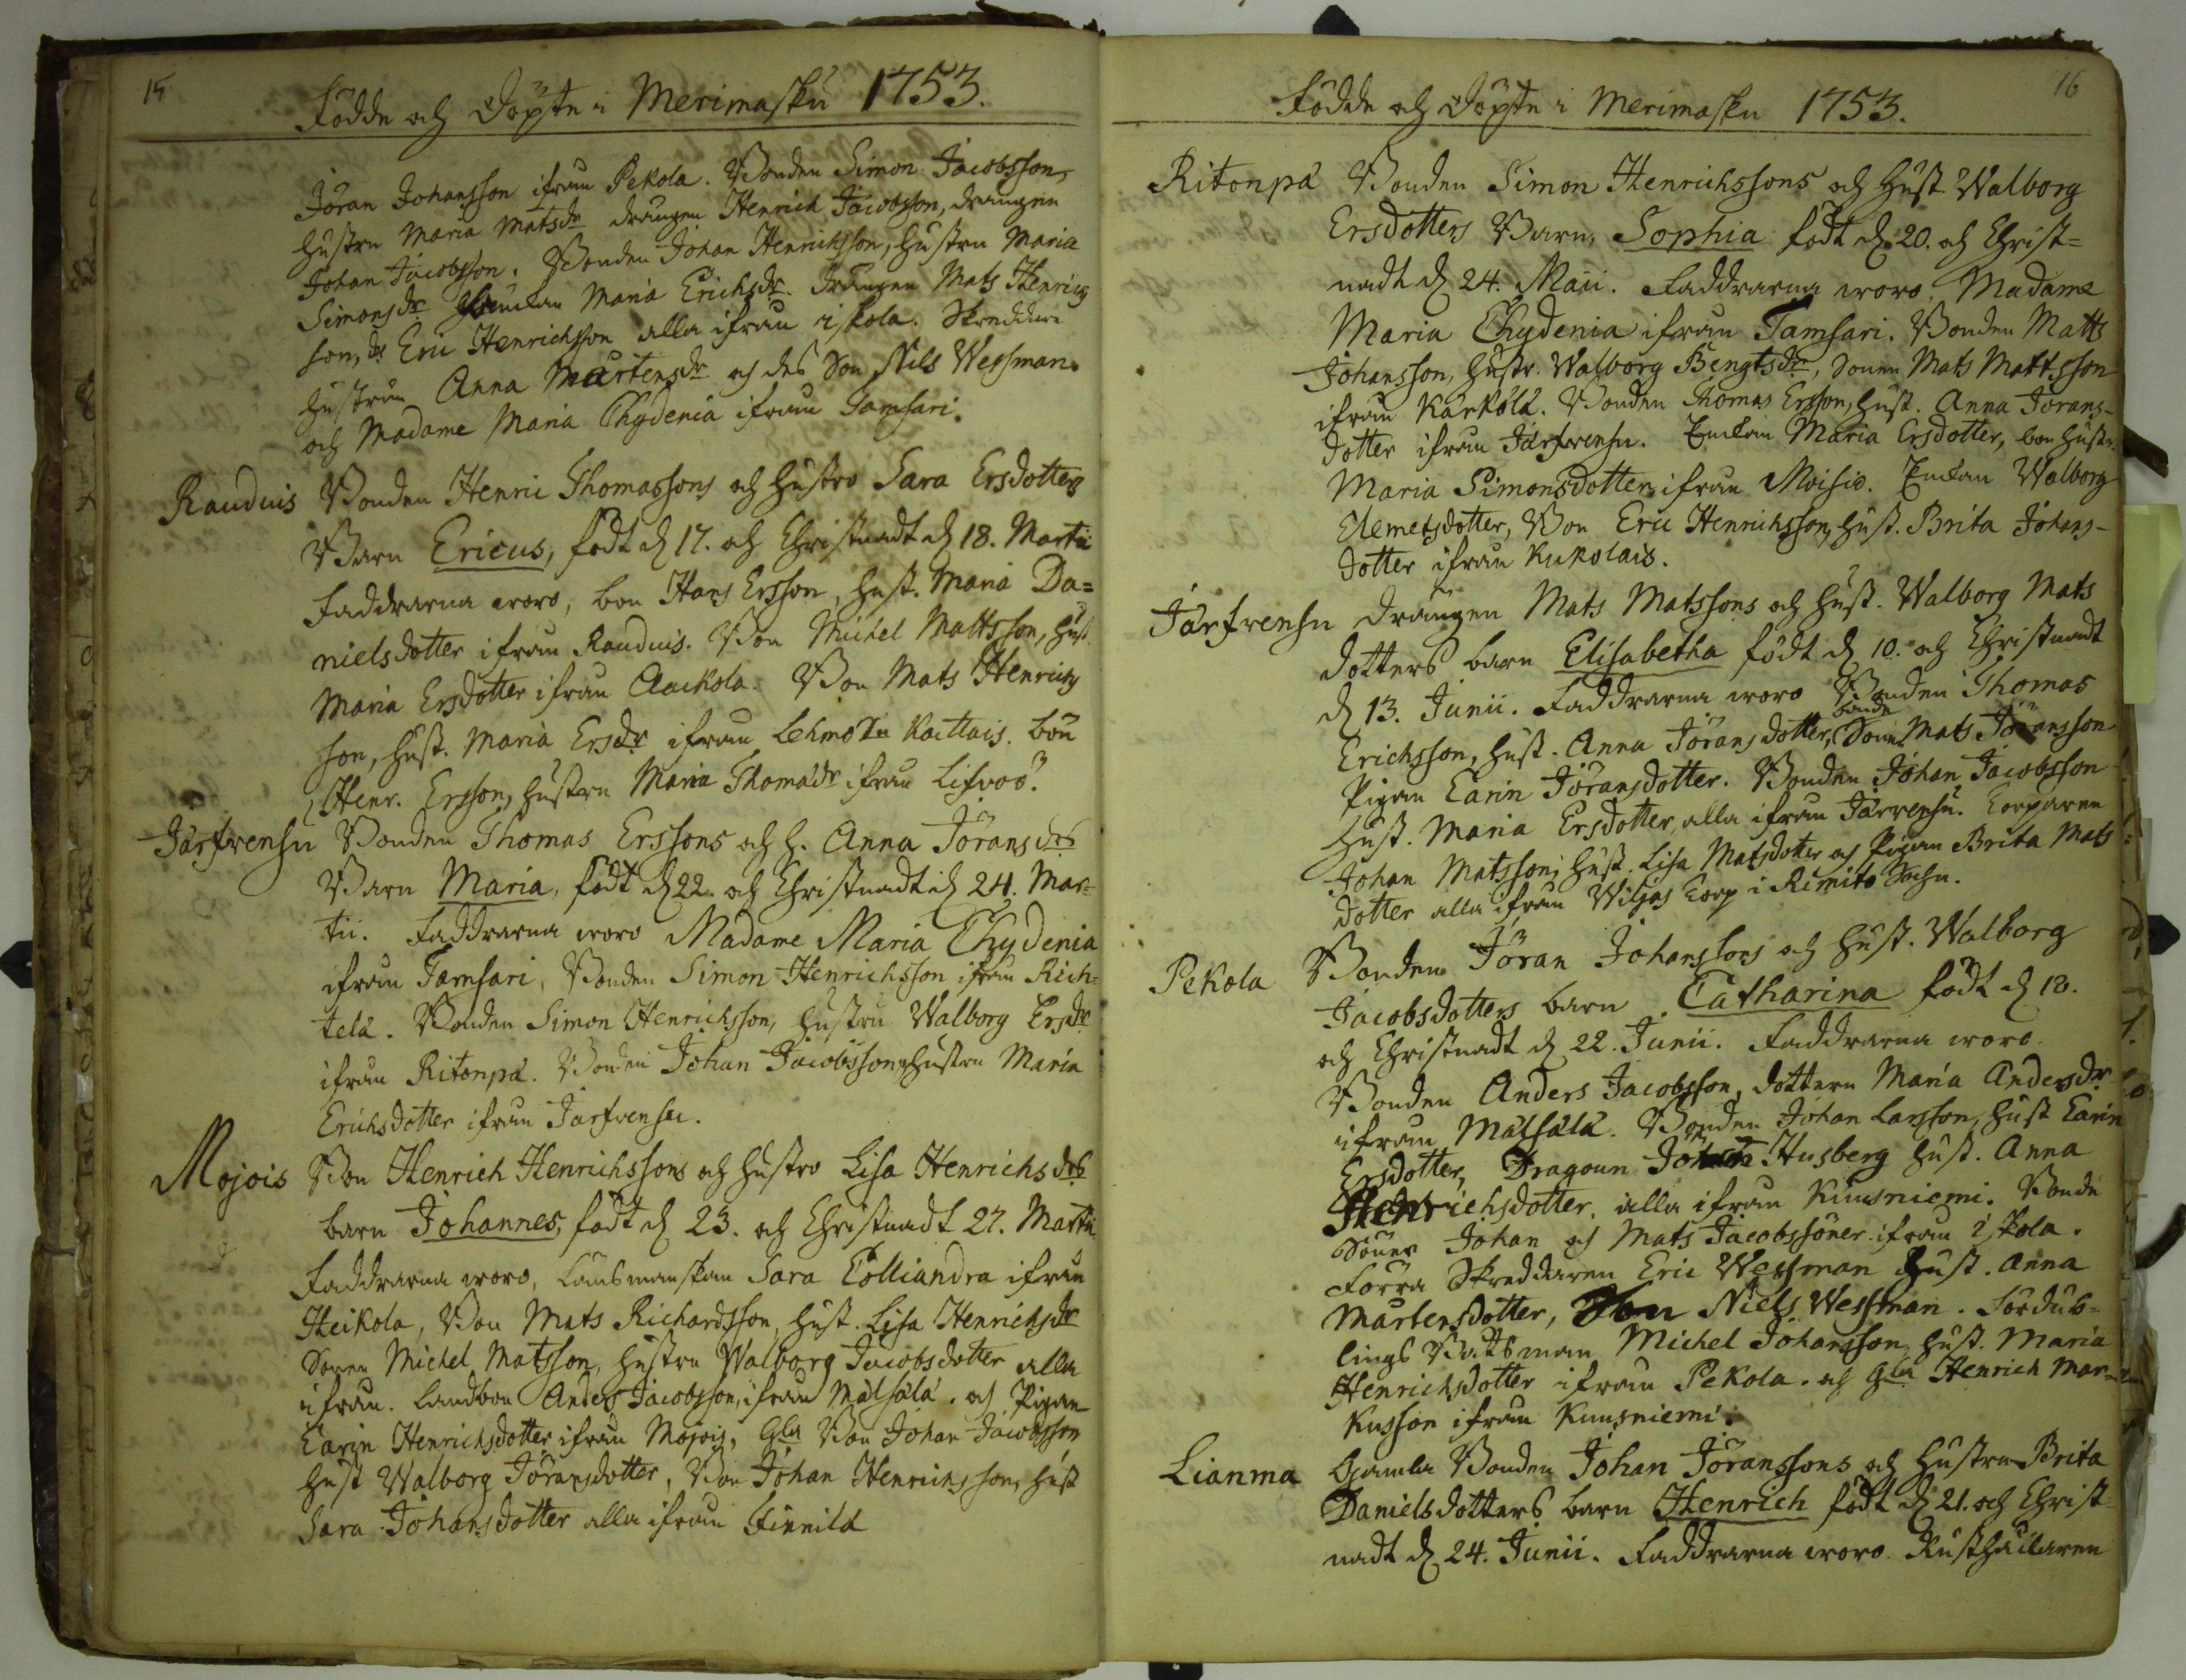 15
Födde och Döpte i Merimasku 1753.
Jöran Johansson ifrån Pekola. Bonden Simon Jacobsson,
hustru Maria Matsdr drängen Henrich Jacobsson, drängen
Johan Jacobsson. Bonden Johan Henrichsson, hustru Maria
Simonsdr Enckan Maria Erichsdr. drängen Mats Henrichs
son, dr Eric Henrichsson alla ifrån iskola. Skreddare
hustrun Anna Mårtensdr och des Son Nils Wessman.
och Madame Maria Chydenia ifrån Tamsari.
Rauduis Bonden Henric Thomassons och hustro Sara Ersdotters
Barn Ericus, född d 17. och Christnadt d 18. Martii
Faddrarna woro, bon Hans Ersson, hust. Maria Da=
nielsdotter ifrån Rauduis. Bon Michel Mattsson, hust.
Maria Ersdotter ifrån Aackola. Bon Mats Henrichs
son, hust. Maria Ersdr ifrån Lehmois Kaittais. bon
Henr. Ersson, hustru Maria Thomædr ifrån Lifwoö.
Järfwensu Bonden Thomas Erssons och h. Anna Jöransdrs
Barn Maria, födt d 22. och Christnadt d 24. Mar=
tii. Faddrarna woro Madame Maria Chydenia
ifrån Tamsari, Bonden Simon Henrichsson ifrån Rich=
telä. Bonden Simon Henrichsson, hustru Walborg Ersdr
ifrån Ritonpä. Bonden Johan Jacobsson, hustru Maria
Erichsdotter ifrån Järfwensu.
Mojois Bon Henrich Henrichssons och hustro Lisa Henrichsdrs
barn Johannes, födt d 23. och Christnadt 27. Martii
Faddrarna woro, Länsmanskan Sara Polliandra ifrån
Heikola, Bon Mats Richardsson, hust. Lisa Henrichsdr
Sonen Michel Matsson, hustru Walborg Jacobsdotter alla
ifrån. Landbon Anders Jacobsson, ifrån Mälsälä. och Pigan
Carin Henrichsdotter ifrån Mojois, Gla Bon Johan Jacobsson
hust Walborg Jöransdotter, Bon Johan Henrichsson, hust
Sara Johansdotter alla ifrån Finnilä
16
Födde och Döpte i Merimasku 1753.
Ritonpä Bonden Simon Henrichssons och Hust Walborg
Ersdotters Barn, Sophia födt d 20. och Christ=
nadt d 24. Maii. Faddrarna woro Madame
Maria Chydenia ifrån Tamsari. Bonden Matts
Johansson, hustr. Walborg Bengtsdr, Sonen Mats Mattsson
ifrån Karkölä. Bonden Thomas Ersson, hust. Anna Jörans-
dotter ifrån Järfwensu. Enckan Maria Ersdotter, bon hustr.
Maria Simonsdotter ifrån Moisio. Enckan Walborg
Clemetsdotter, Bon Eric Henrichsson, hust. Brita Johans-
dotter ifrån Kukolais.
Järfwensu drängen Mats Matssons och hust. Walborg Mats
dotters barn Elisabetha född d 10. och Christnadt
d 13. Junii. Faddrarna woro Bonden Thomas
Erichsson, hust. Anna Jöransdotter, bonde Sonen Mats Jöransson
Pigan Carin Jöransdotter. Bonden Johan Jacobsson
Hust. Maria Ersdotter, alla ifrån Järwensu. Torparen
Johan Matsson, hust. Lisa Matsdotter och Pigan Brita Mats
dotter alla ifrån Wiljas Torp i Rimito Sochn.
Pekola Bonden Jöran Johanssons och hust. Walborg
Jacobsdotters barn Catharina födt d 18.
och Christnadt d 22. Junii. Faddrarna woro
Bonden Anders Jacobsson, dottern Maria Andersdr
ifrån Mälsälä. Bonden Johan Larsson, hust Carin
Ersdotter, Dragoun Johan Husberg hust. Anna
Henrichsdotter, alla ifrån Kuusniemi. Bonde
Söner Johan och Mats Jacobssöner ifrån iskola.
Förra Skreddaren Eric Wessman hust. Anna
Mårtensdotter, Son Niels Wessman. Fördub=
lings Båtsman Michel Johansson, hust. Maria
Henrichsdotter ifrån Pekola. och Gla Henrich Mar-
kusson ifrån Kuusniemi.
Lianma Gamla Bonden Johan Jöranssons och hustru Brita
Danielsdotters barn Henrich födt d 21. och Christ
nadt d 24. Junii. Faddrarna woro Rusthållaren